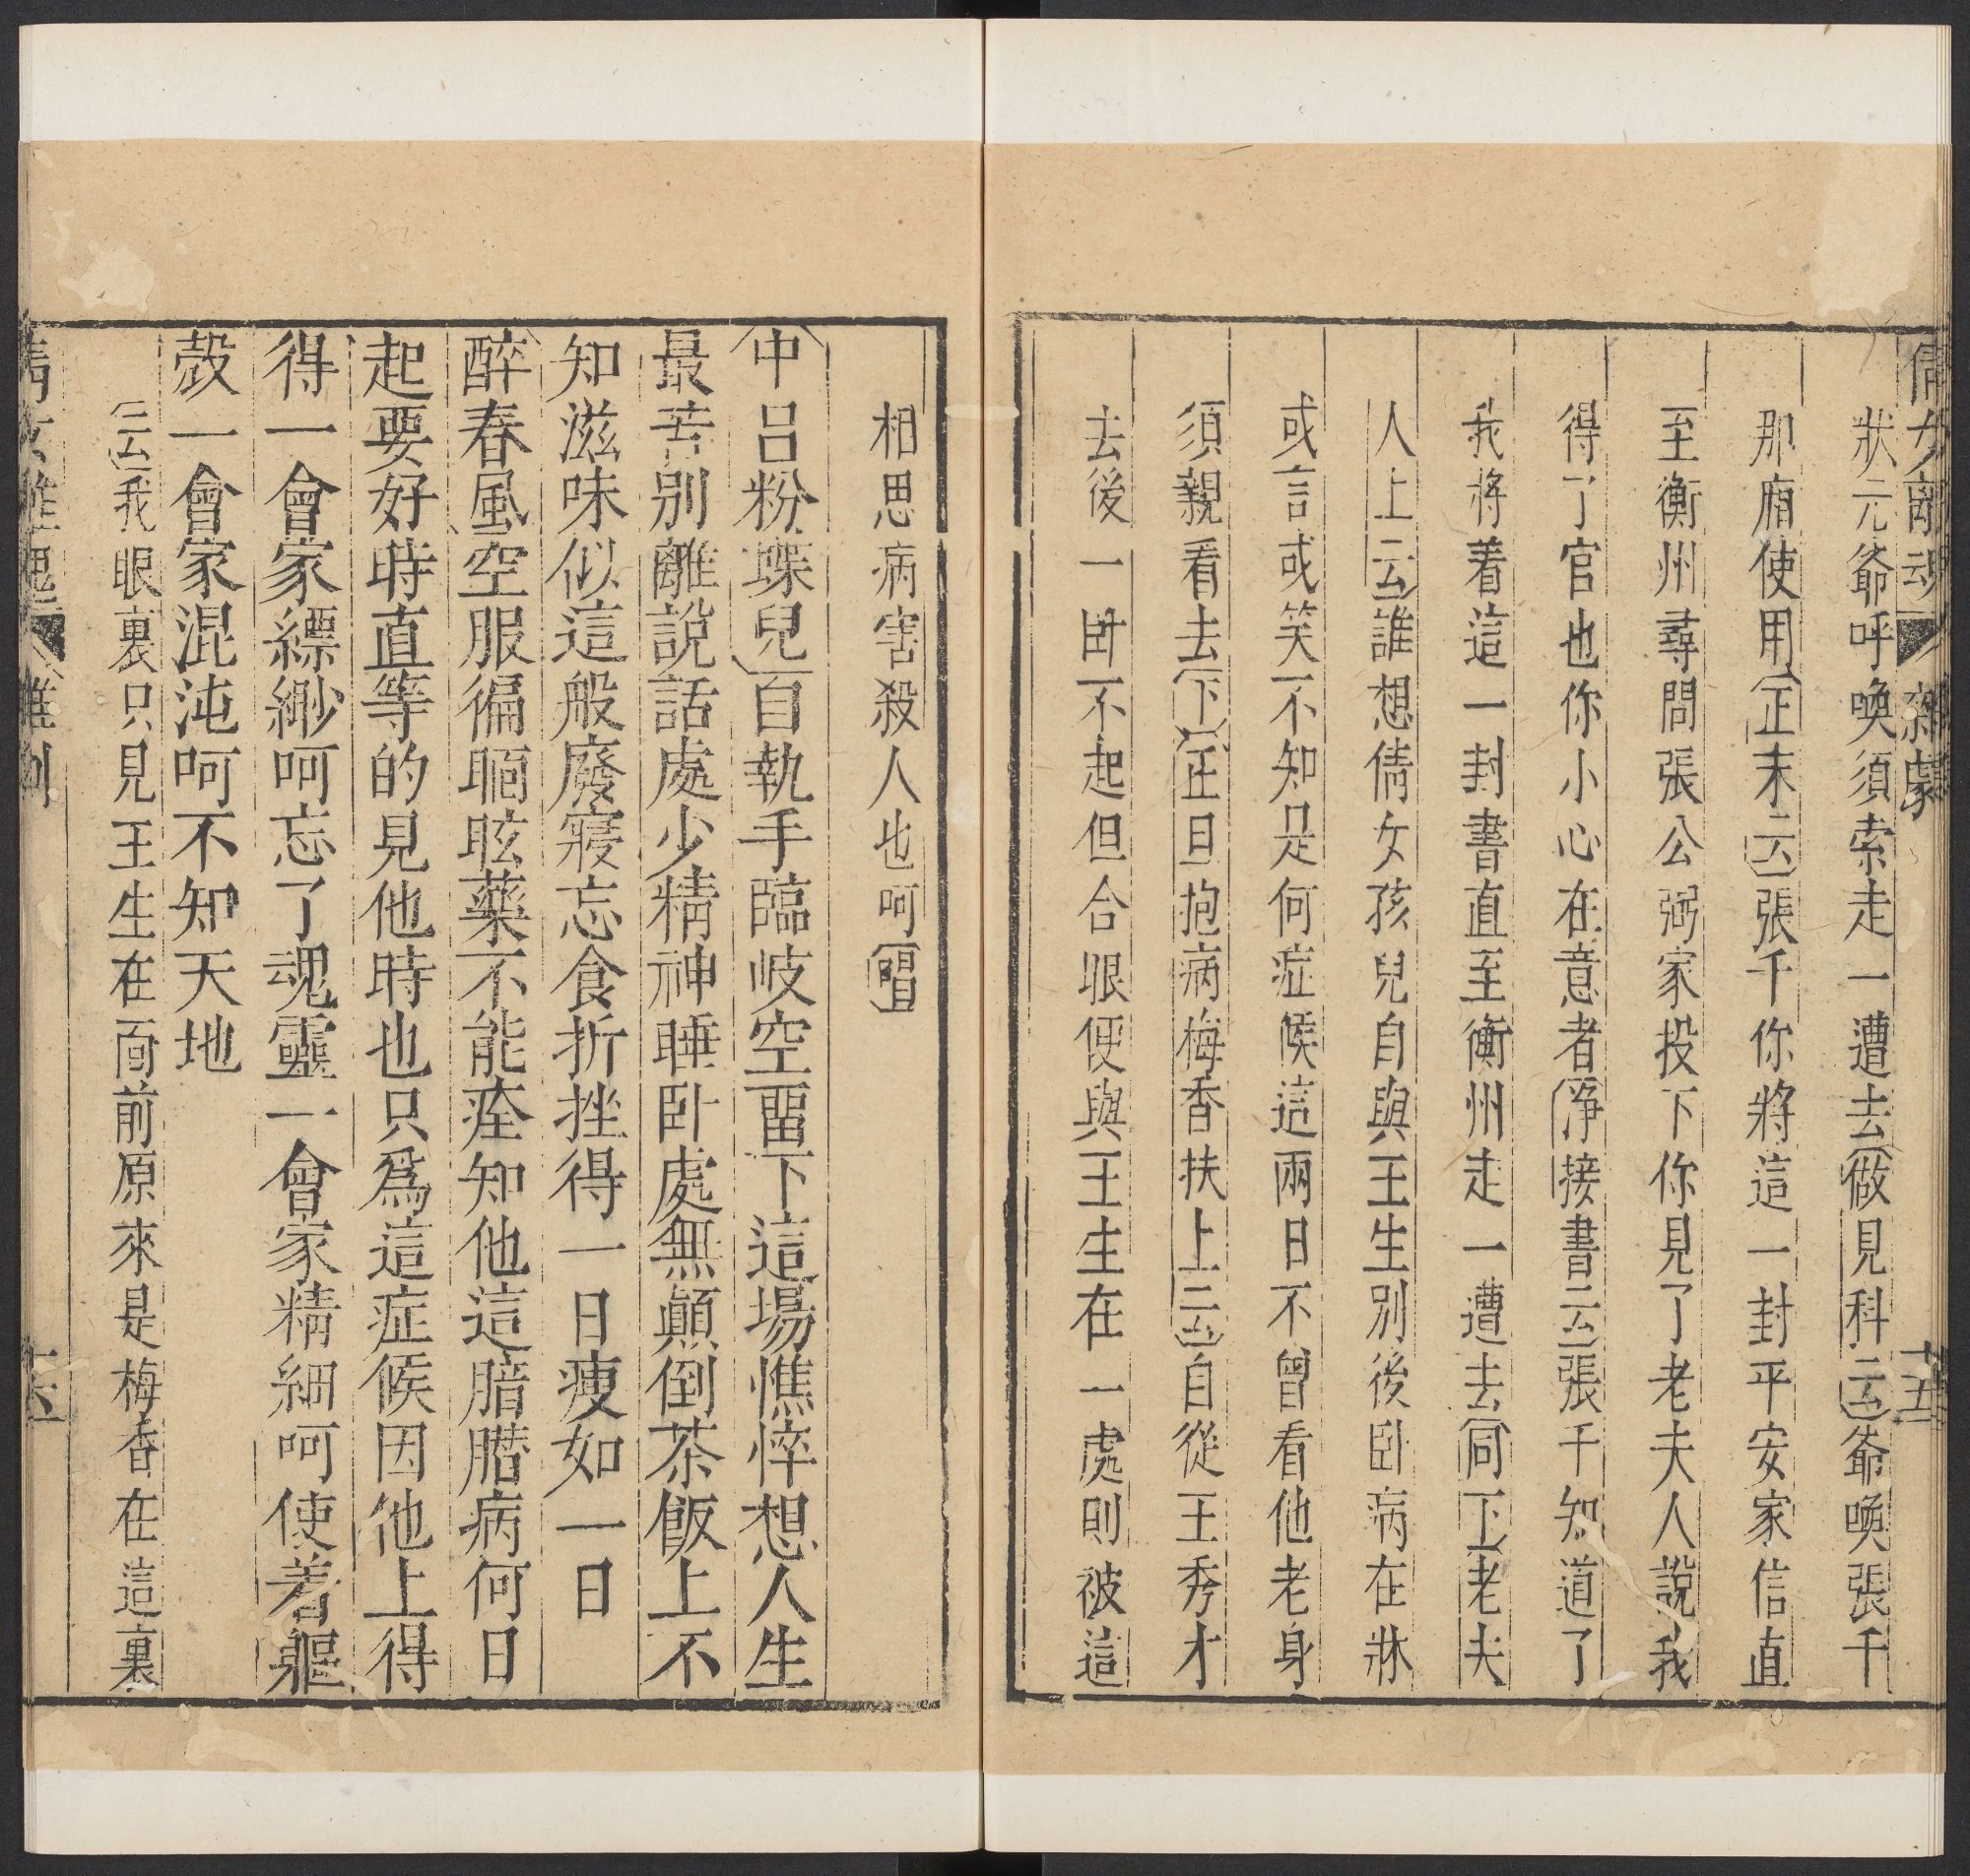 倩女離魂 雜劇 十五
狀元爺呼喚須索走一遭去做見科云爺喚張千
那廂使用正末云張千你將這一封平安家信直
至衡州尋問張公弼家投下你見了老夫人說我
得了官也你小心在意者淨接書云張千知道了
我將着這一封書直至衡州走一遭去同下老夫
人上云誰想倩女孩兒自與王生別後臥病在牀
或言或笑不知是何症候這兩日不曾看他老身
須親看去下正旦抱病梅香扶上云自從王秀才
去後一臥不起但合眼便與王生在一處則被這
相思病害殺人也呵唱
中呂粉蝶兒自執手臨岐空畱下這場憔悴想人生
最苦別離說話處少精神睡臥處無顛倒茶飯上不
知滋味似這般廢寢忘食折挫得一日瘦如一日
醉春風空服徧瞑眩藥不能痊知他這腤臢病何日
起要好時直等的見他時也只爲這症候因他上得
得一會家縹緲呵忘了魂靈一會家精細呵使着軀
殼一會家混沌呵不知天地
云我眼裏只見王生在面前原來是梅香在這裏
倩女離魂 雜劇